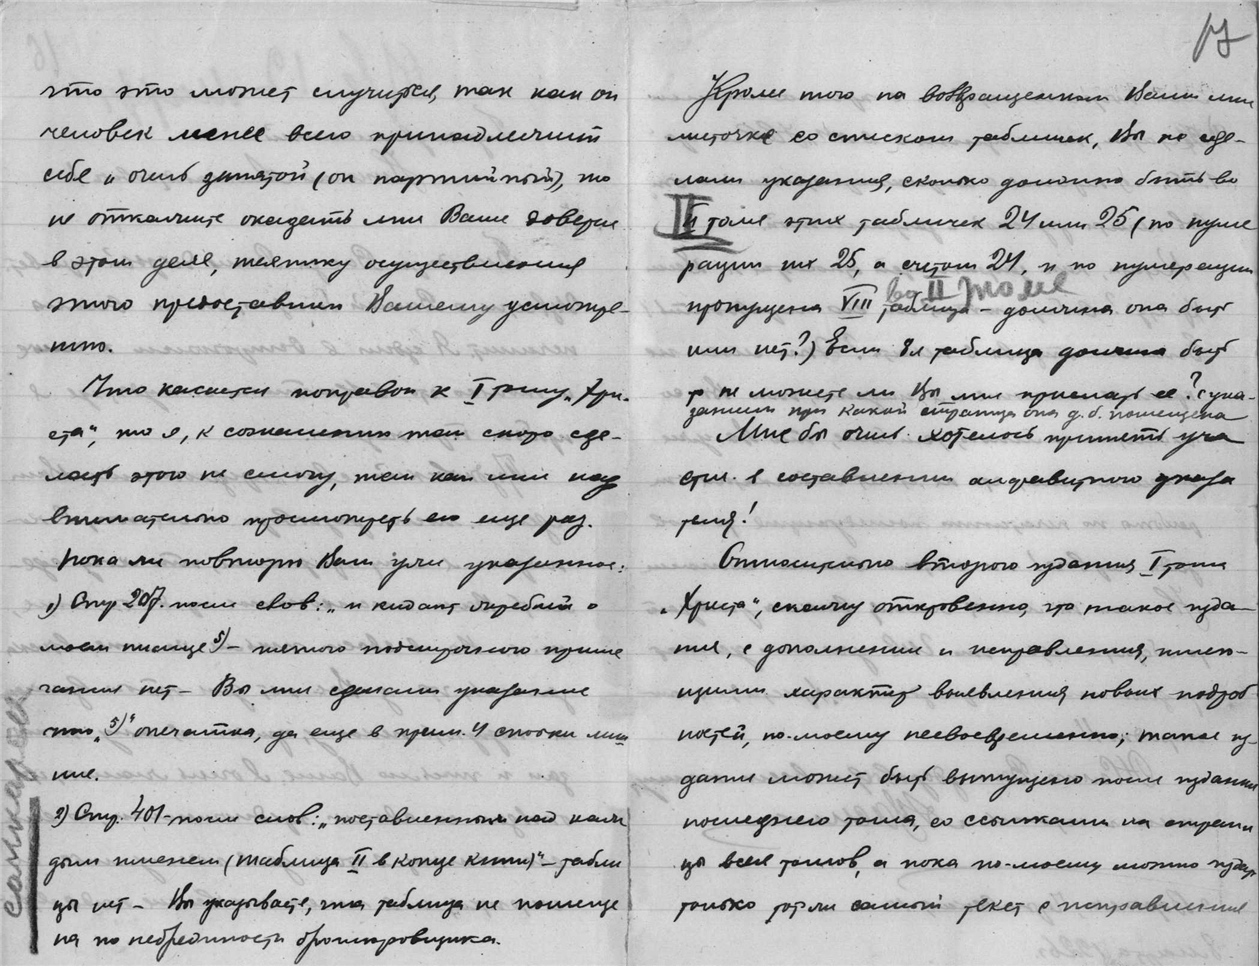 что это может случиться, так как он
человек менее всего принадлежит
себе и очень занятой (он партийный), то
не откажите оказать мне Ваше доверие
в этом деле, технику осуществления
этого предоставим Вашему усмотре-
нию.
Что касается поправок к I тому „Хри-
ста“, то я, к сожалению так скоро сде-
лать этого не смогу, так как мне надо
внимательно просмотреть его еще раз.
Пока же повторю Вам уже указанное:
1) Стр 207. после слов: „и кидают жребий о
моем платье 5) – такого подстрочного приме
чания нет – Вы мне сделали указание
что „5)“ опечатка, да еще в прим. 4 строки лиш
ние.
2) Стр. 401 – после слов: „поставленным над каж
дым именем (таблица II в конце книги)“ – табли
цы нет – Вы указываете, что таблица не помеще
на по небрежности брошюровщика.
17
Кроме того на возвращенном Вами мне
листочке со списком табличек, Вы не сде-
лали указания, сколько должно быть во
II томе этих табличек 24 или 25 (по нуме
рации их 25, а счетом 24, и по нумерации
во II томе
пропущена VIII таблица – должна она быть
или нет?) Если 8я таблица должна быть
то не можете ли Вы мне прислать ее? (с ука-
занием при какой странице она д. б. помещена
Мне бы очень хотелось принять уча
стие в составлении алфавитного указа
теля!
Относительно второго издания I тома
„Христа“, скажу откровенно, что такое изда-
ние, с дополнения и исправления, имею-
щими характер выявления новых подроб
ностей, по-моему несвоевременно; такое из-
дание может быть выпущено после издания
последнего тома, со ссылками на страни
цы всех томов, а пока по-моему можно издать
только тот же самый текст с исправления